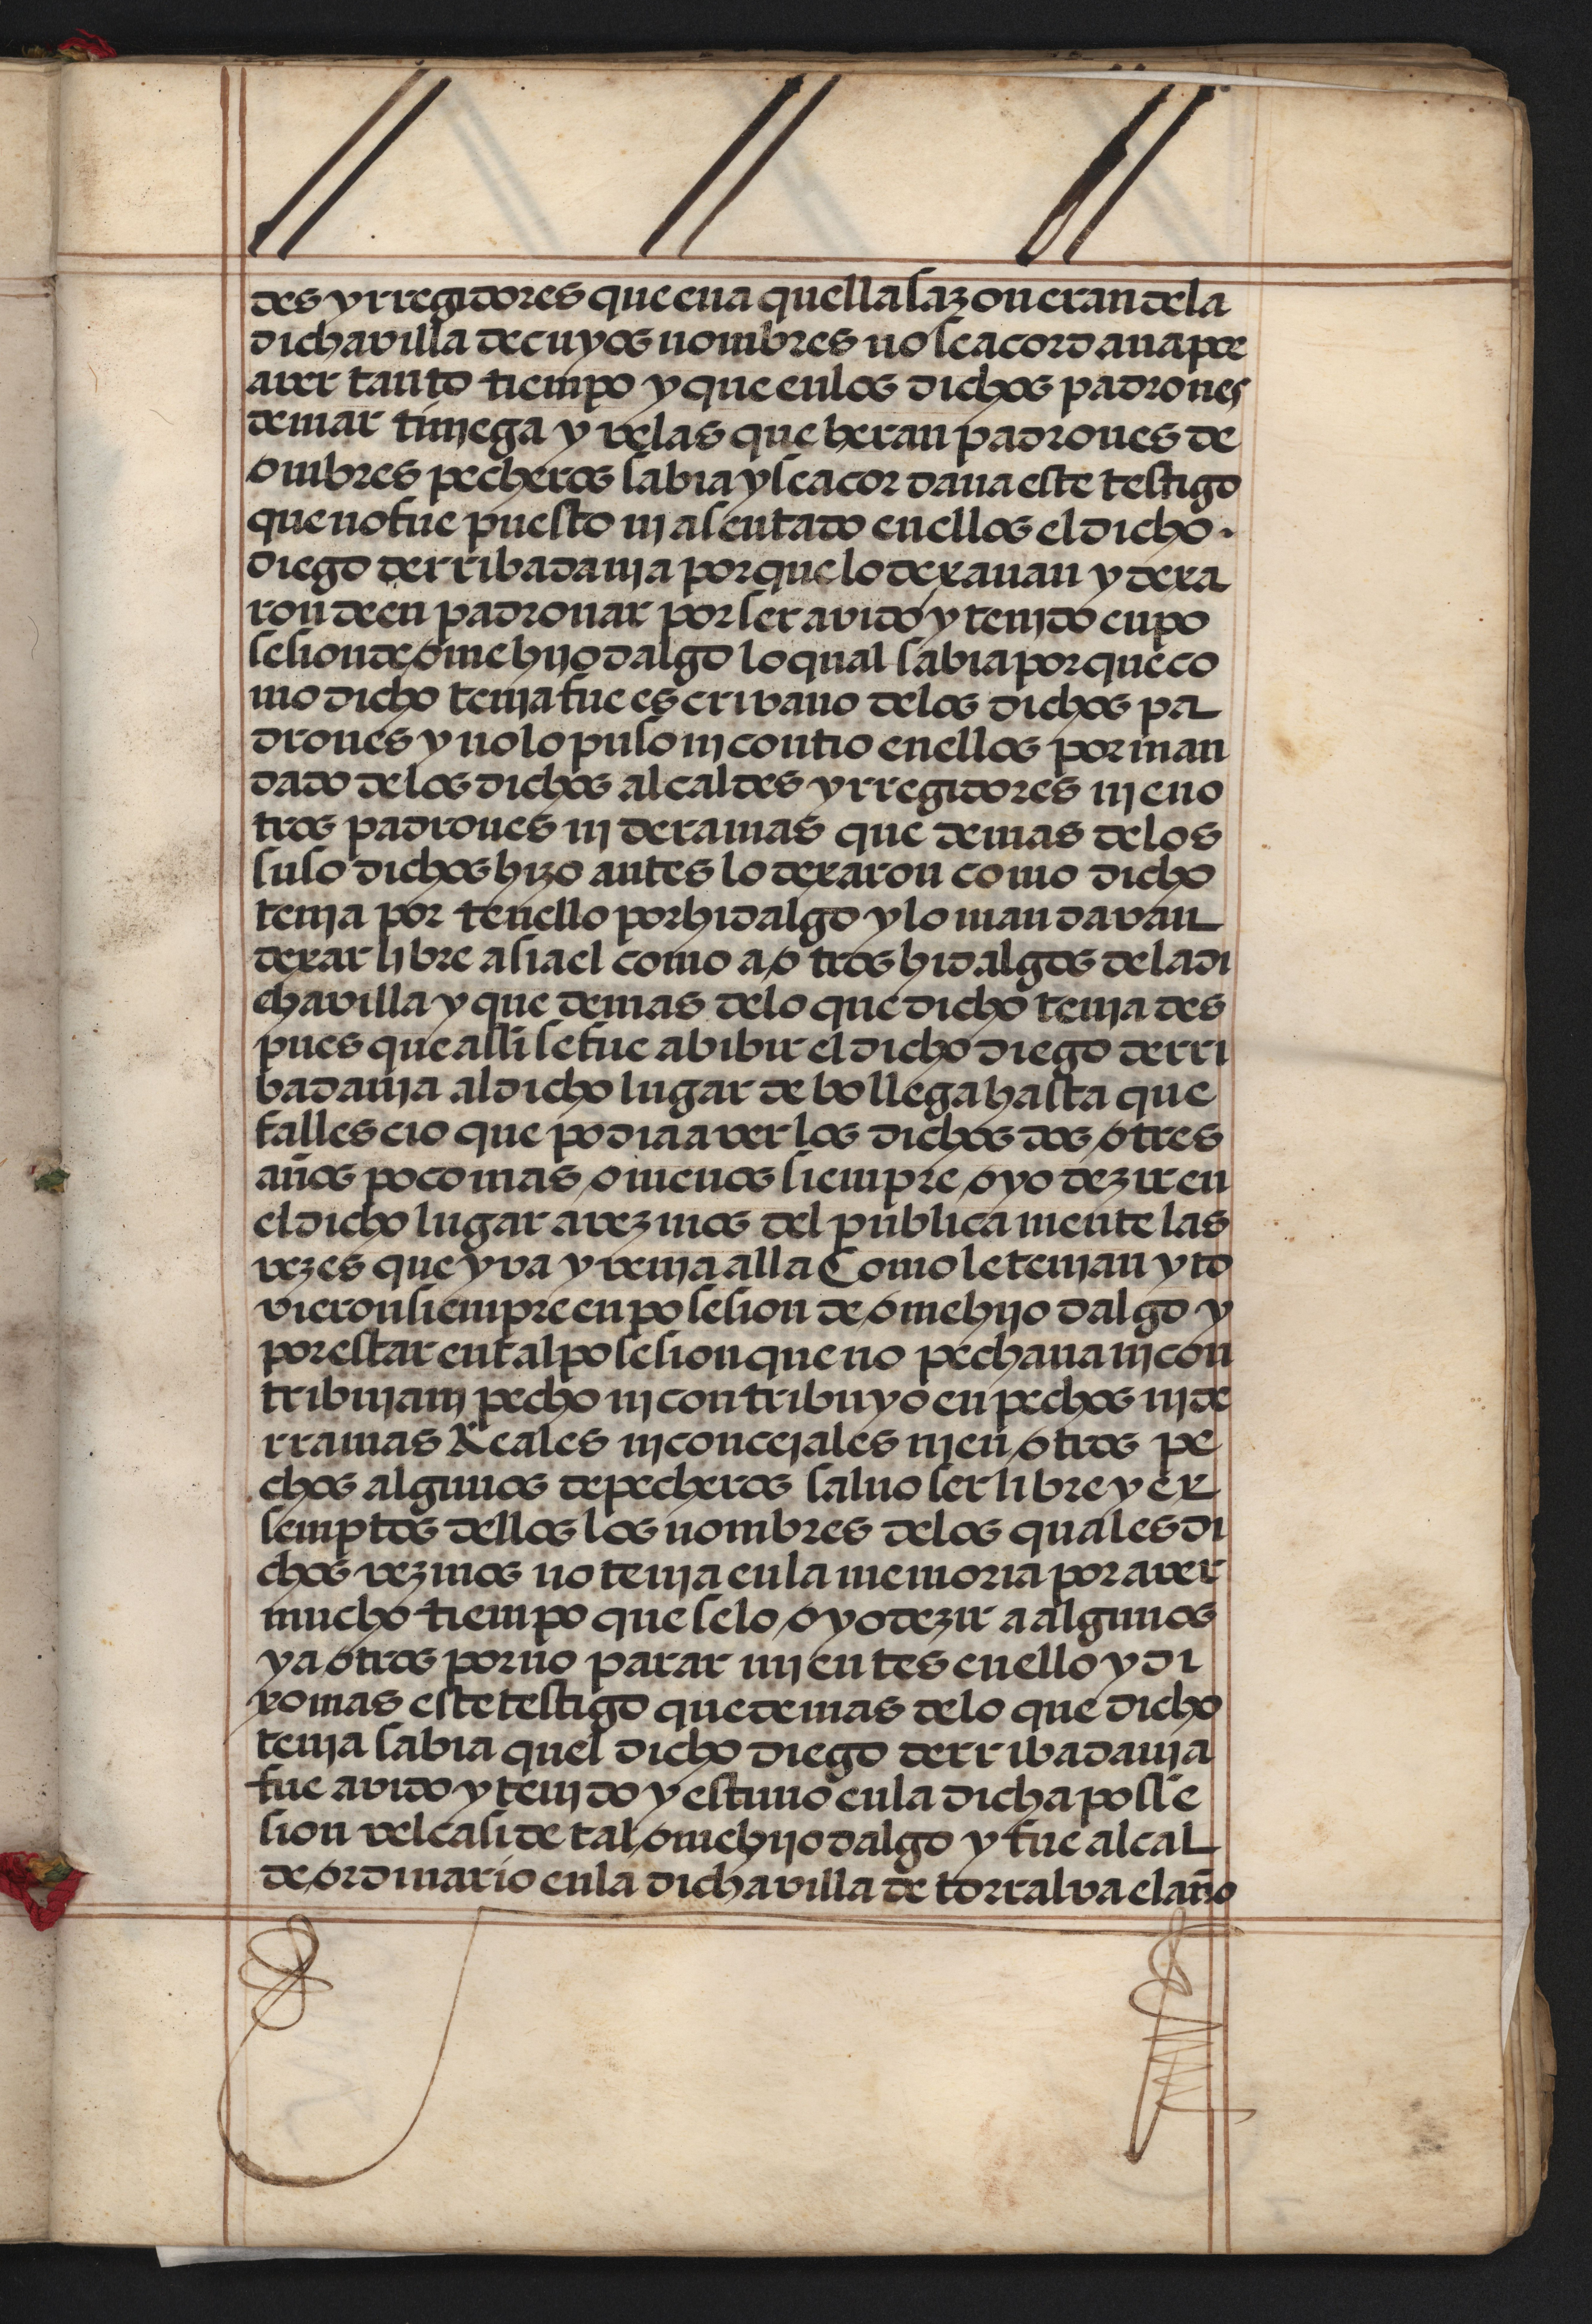 des y rregidores que en a quella sazon eran de la
dicha villa de cuyos nombres no se acordaua por
aver tanto tiempo y que en los dichos padrones
de martiniega y velas que heran padrones de
ombres pecheros sabia y se acordaua este testigo
que no fue puesto ni asentado en ellos el dicho.
diego de rribadania porque lo dexauan y dexa
ron de en padronar por ser avido y tenido en po
sesion de ome hijo dalgo lo qual sabia por que co
mo dicho tenia fue escrivano de los dichos pa
drones y no lo puso ni contio en ellos por man
dado de los dichos alcaldes y rregidores ni en o
tros padrones ni deramas que demas de los
suso dichos hizo antes lo dexaron como dicho
tenia por tenello por hidalgo y lo mandavan
dexar libre asi a el como a otros hidalgos de la di
cha villa y que demas de lo que dicho tenia des
pues que alli se fue a bibir el dicho diego de rri
badania al dicho lugar de bollega hasta que
fallescio que podia aver los dichos dos o tres
años poco mas o menos siempre oyo dezir en
el dicho lugar a vezinos del publica mente las
vezes que yva y venia alla Como le tenian y to
vieron siempre en posesion de ome hijo dalgo y
por estar en tal posesion que no pechaua ni con
tribuia ni pecho ni contribuyo en pechos ni de
rramas Reales ni concejales ni en otros pe
chos algunos de pecheros saluo ser libre y ex
semptos dellos los nombres de los quales di
chos vezinos no tenia en la memoria por aver
mucho tiempo que se lo oyo dezir a algunos
y a otros por no parar mientes en ello y di
xo mas este testigo que demas de lo que dicho
tenia sabia quel dicho diego de rribadania
fue avido y tenido y estuuo en la dicha posse
sion vel casi de tal ome hijo dalgo y fue alcal
de ordinario en la dicha villa de torralva el año